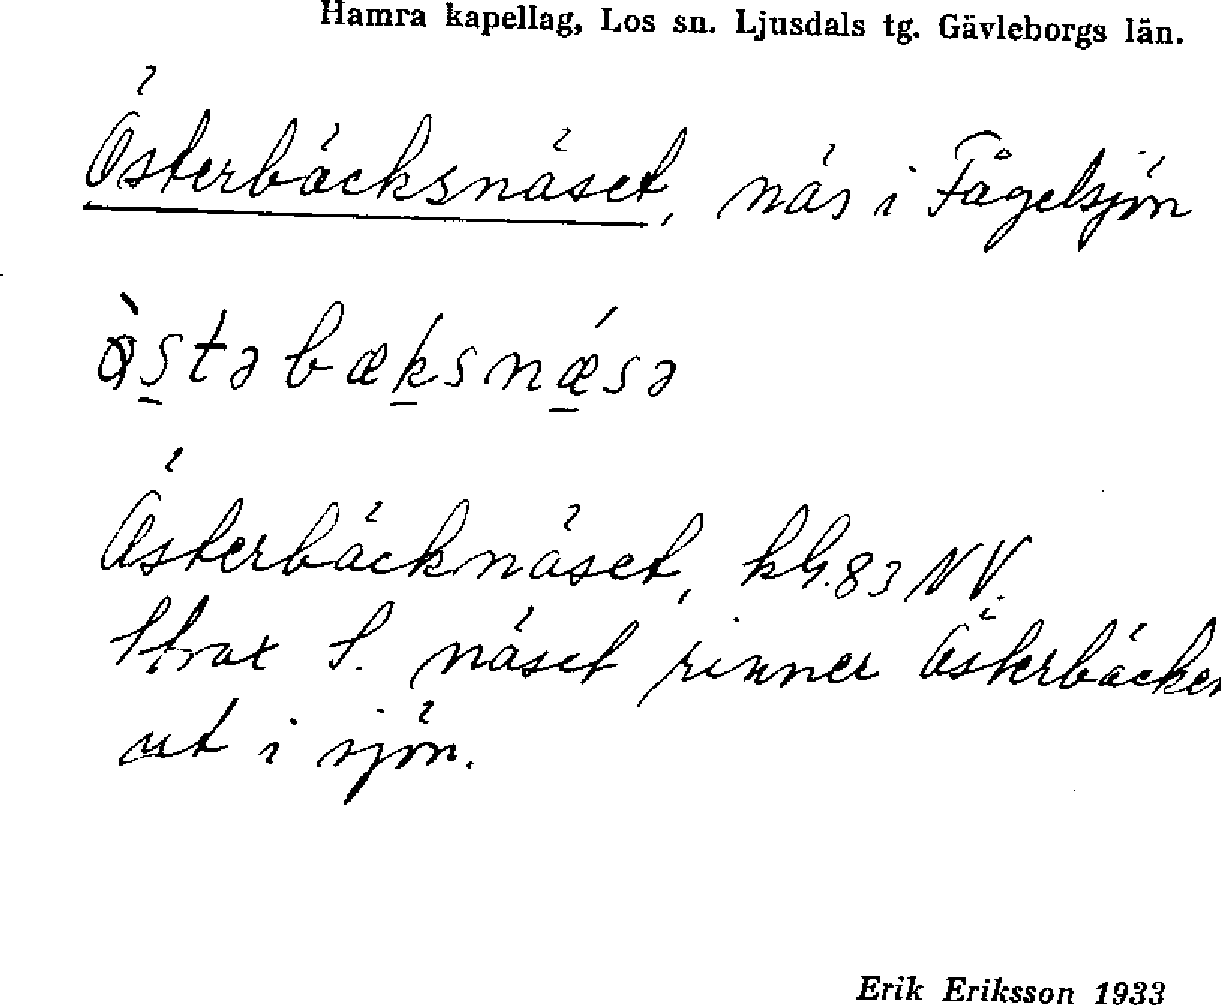 Hamra kapellag, Los sn. Ljusdals tg. Gävleborgs län.
Österbäcksnäset, näs i Fågelsjön
ὸstəbæksnǽsə
Österbäcknäset, kbl. 83 NV.
Strax S. näset rinner Österbäcken
ut i sjön.
Erik Eriksson 1933